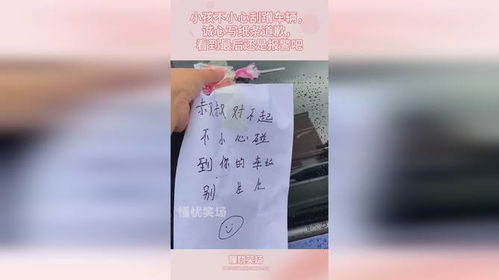 小孩不小心刮蹭车辆，
诚心写纸条道歉，
看到最后还是报警吧
叔叔对不起
不小心碰
到你的车
别
懂忧笑场
懂忧笑场